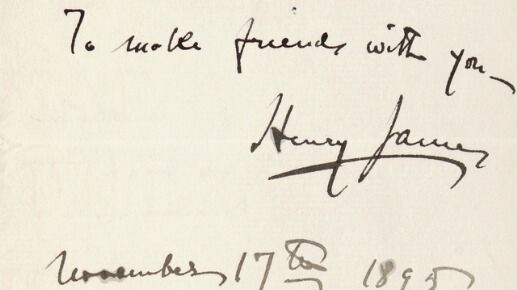 To make friends with you –
Henry James
November 17th 1895